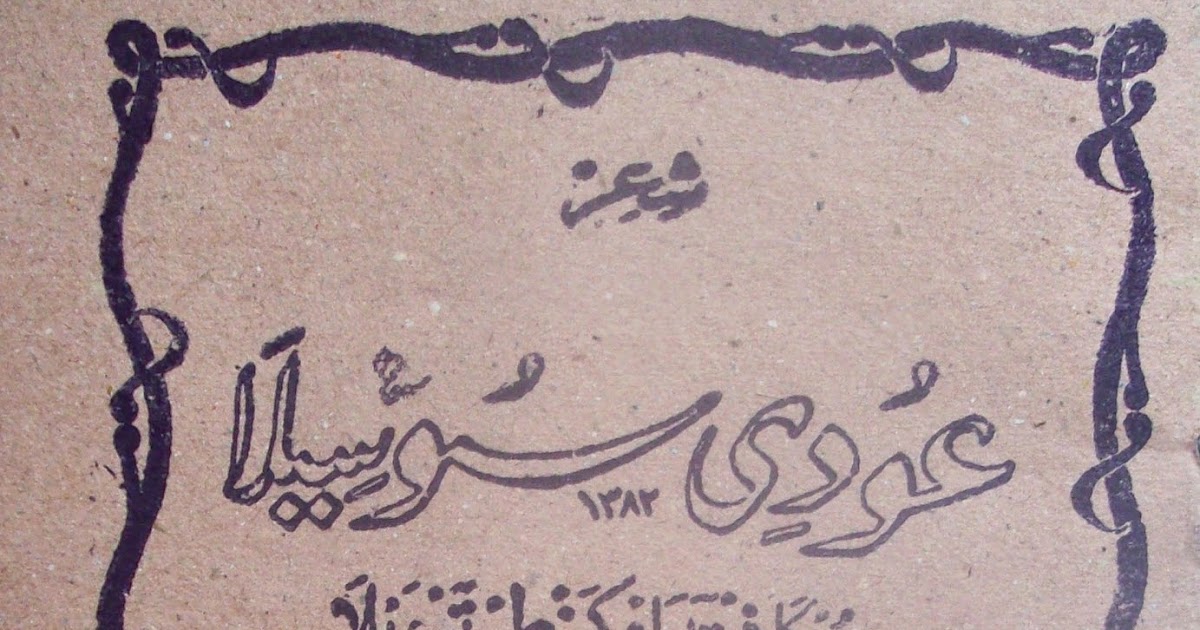 شِعِرْ
عُودِي سُوْسِيْلَا
١٣٨٢